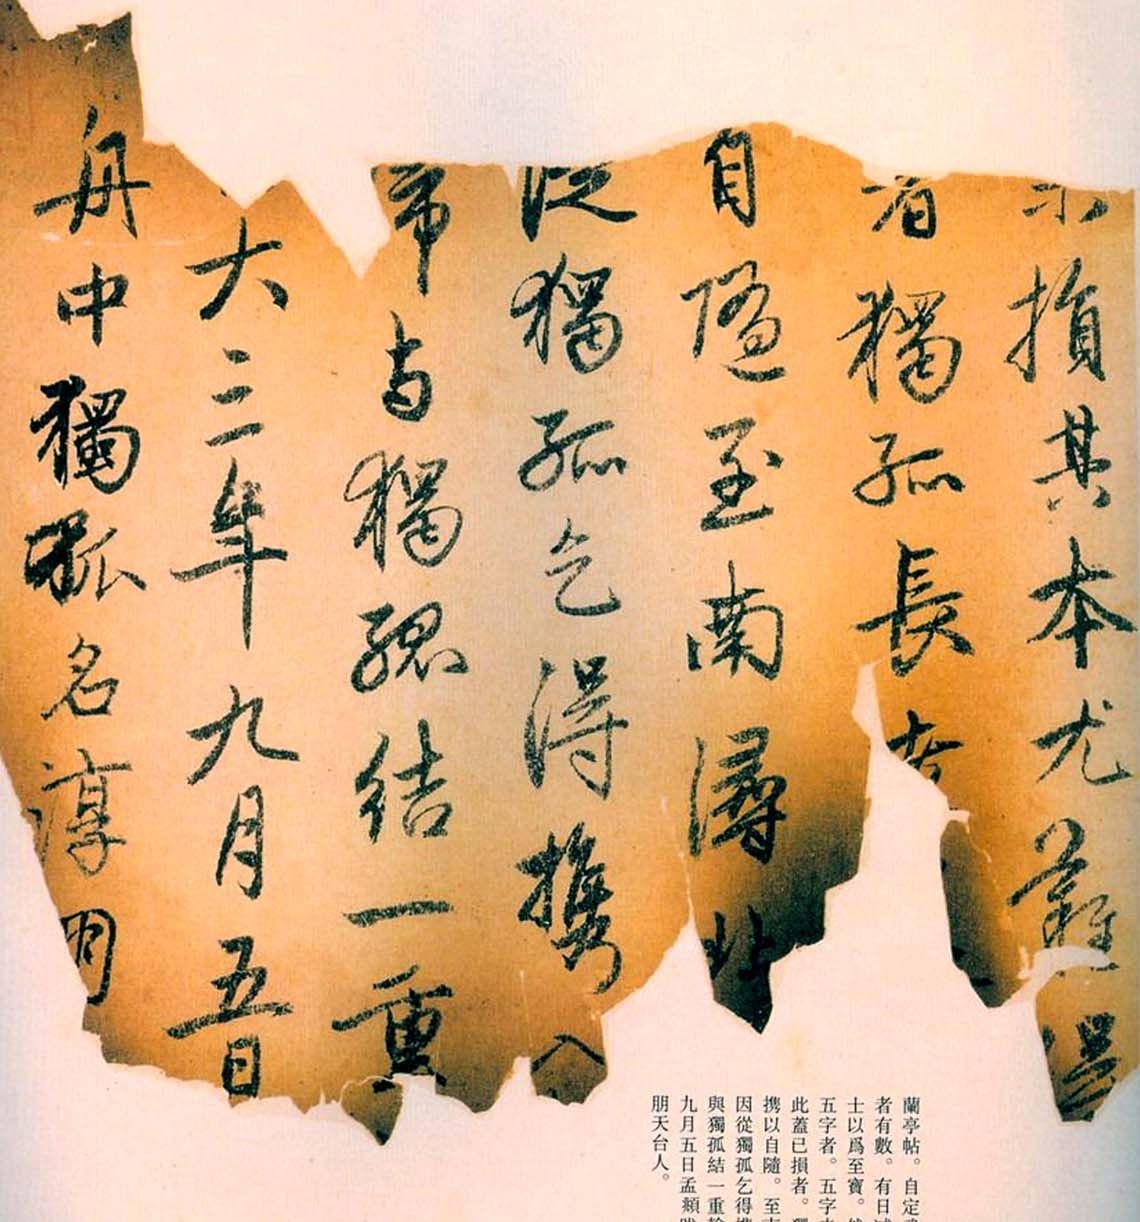 未損其本尤難得
者獨孤長老
自隨至南潯北
從獨孤乞得攜入
歸与獨孤結一重
大三年九月五日
舟中獨孤名淳朋
蘭亭帖。自定
者有數。有日
士以爲至寶。
五字者。五字
此蓋已損者。
携以自隨。至
因從獨孤乞得
與獨孤結一重
九月五日孟頫
朋天台人。